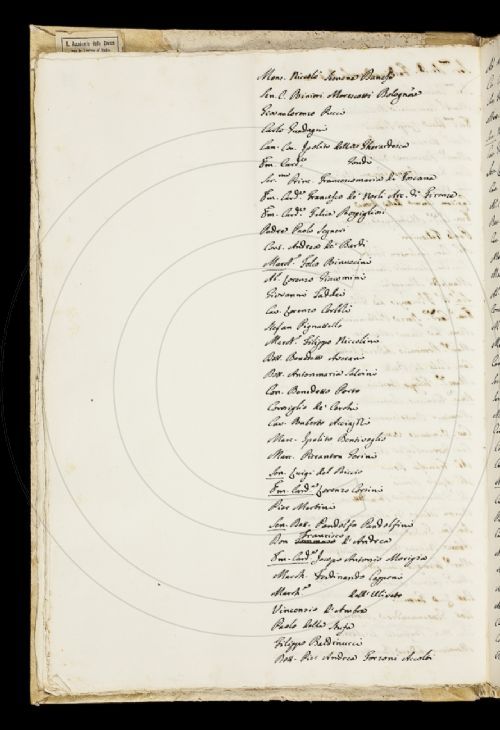 R. Accademia della Crusca
Mons. Niccolò Simone
Sen. C. Binieri Marescotti Bolognese
Giovanlorenzo Pucci
Carlo Guadagni
Can. Co. Ipolito della Gherardesca
Em. Card.
Ser.mo Princ. Francescomaria di Toscana
Em. Card. Francesco de' Nerli Arc. di Firenze
Em. Card. Felice Rospigliosi
Padre Paolo Segneri
Cons. Andrea de' Bardi
March. Folco Rinuccini
Ab. Lorenzo Giacomini
Giovanni Taddei
Cav. Lorenzo
Stefan Pignattelli
March. Filippo Niccolini
Bott. Benedetto
Bott. Antonmaria Salvini
Con. Benedetto
Consiglio de' Cerchi
Cav. Ruberto Acciajoli
Marc. Ipolito Bentivoglio
Marc. Pierantonio Gerini
Sen. Luigi del Riccio
Em. Card. Lorenzo Corsini
Pier Martini
Sen. Bott. Pandolfo Pandolfini
Francesco
Don d'Andrea
Em. Card. Joseph Antonio Morigia
March. Ferdinando Capponi
March. dell' Uliveto
Vincenzio d'Ambra
Paolo della Stufa
Filippo Baldinucci
Bott. Pier Andrea Forzoni Accolti